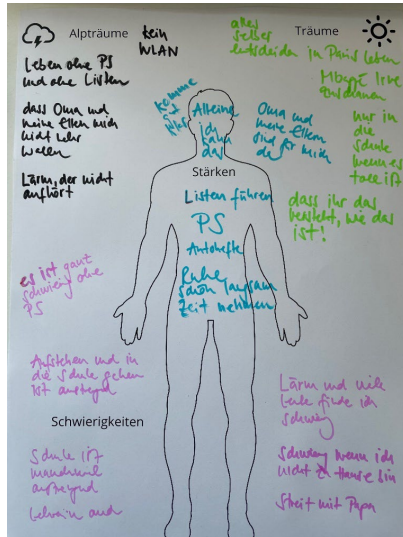 Alpträume
kein
WLAN
Leben ohne PS
und ohne Listen
dass Oma und
meine Eltern mich
nicht mehr
wollen
Lärm, der nicht
aufhört
Träume
alles
selber
entscheiden
in Paris leben
Mbappé
nur in
die
Schule
wenn es
toll ist
dass ihr das
versteht, wie das
ist!
Alleine
ich
kann
das
Oma und
meine Eltern
sind für mich
da
Stärken
Listen führen
PS
Autohefte
Ruhe
schön langsam
Zeit nehmen
es ist ganz
schwierig ohne
PS
Aufstehen und in
die Schule gehen
ist anstrengend
Schwierigkeiten
Schule ist
manchmal
aufregend
Lehrerin auch
Lärm und viele
Leute finde ich
schwierig
schwierig wenn ich
nicht zu Hause bin
Streit mit Papa